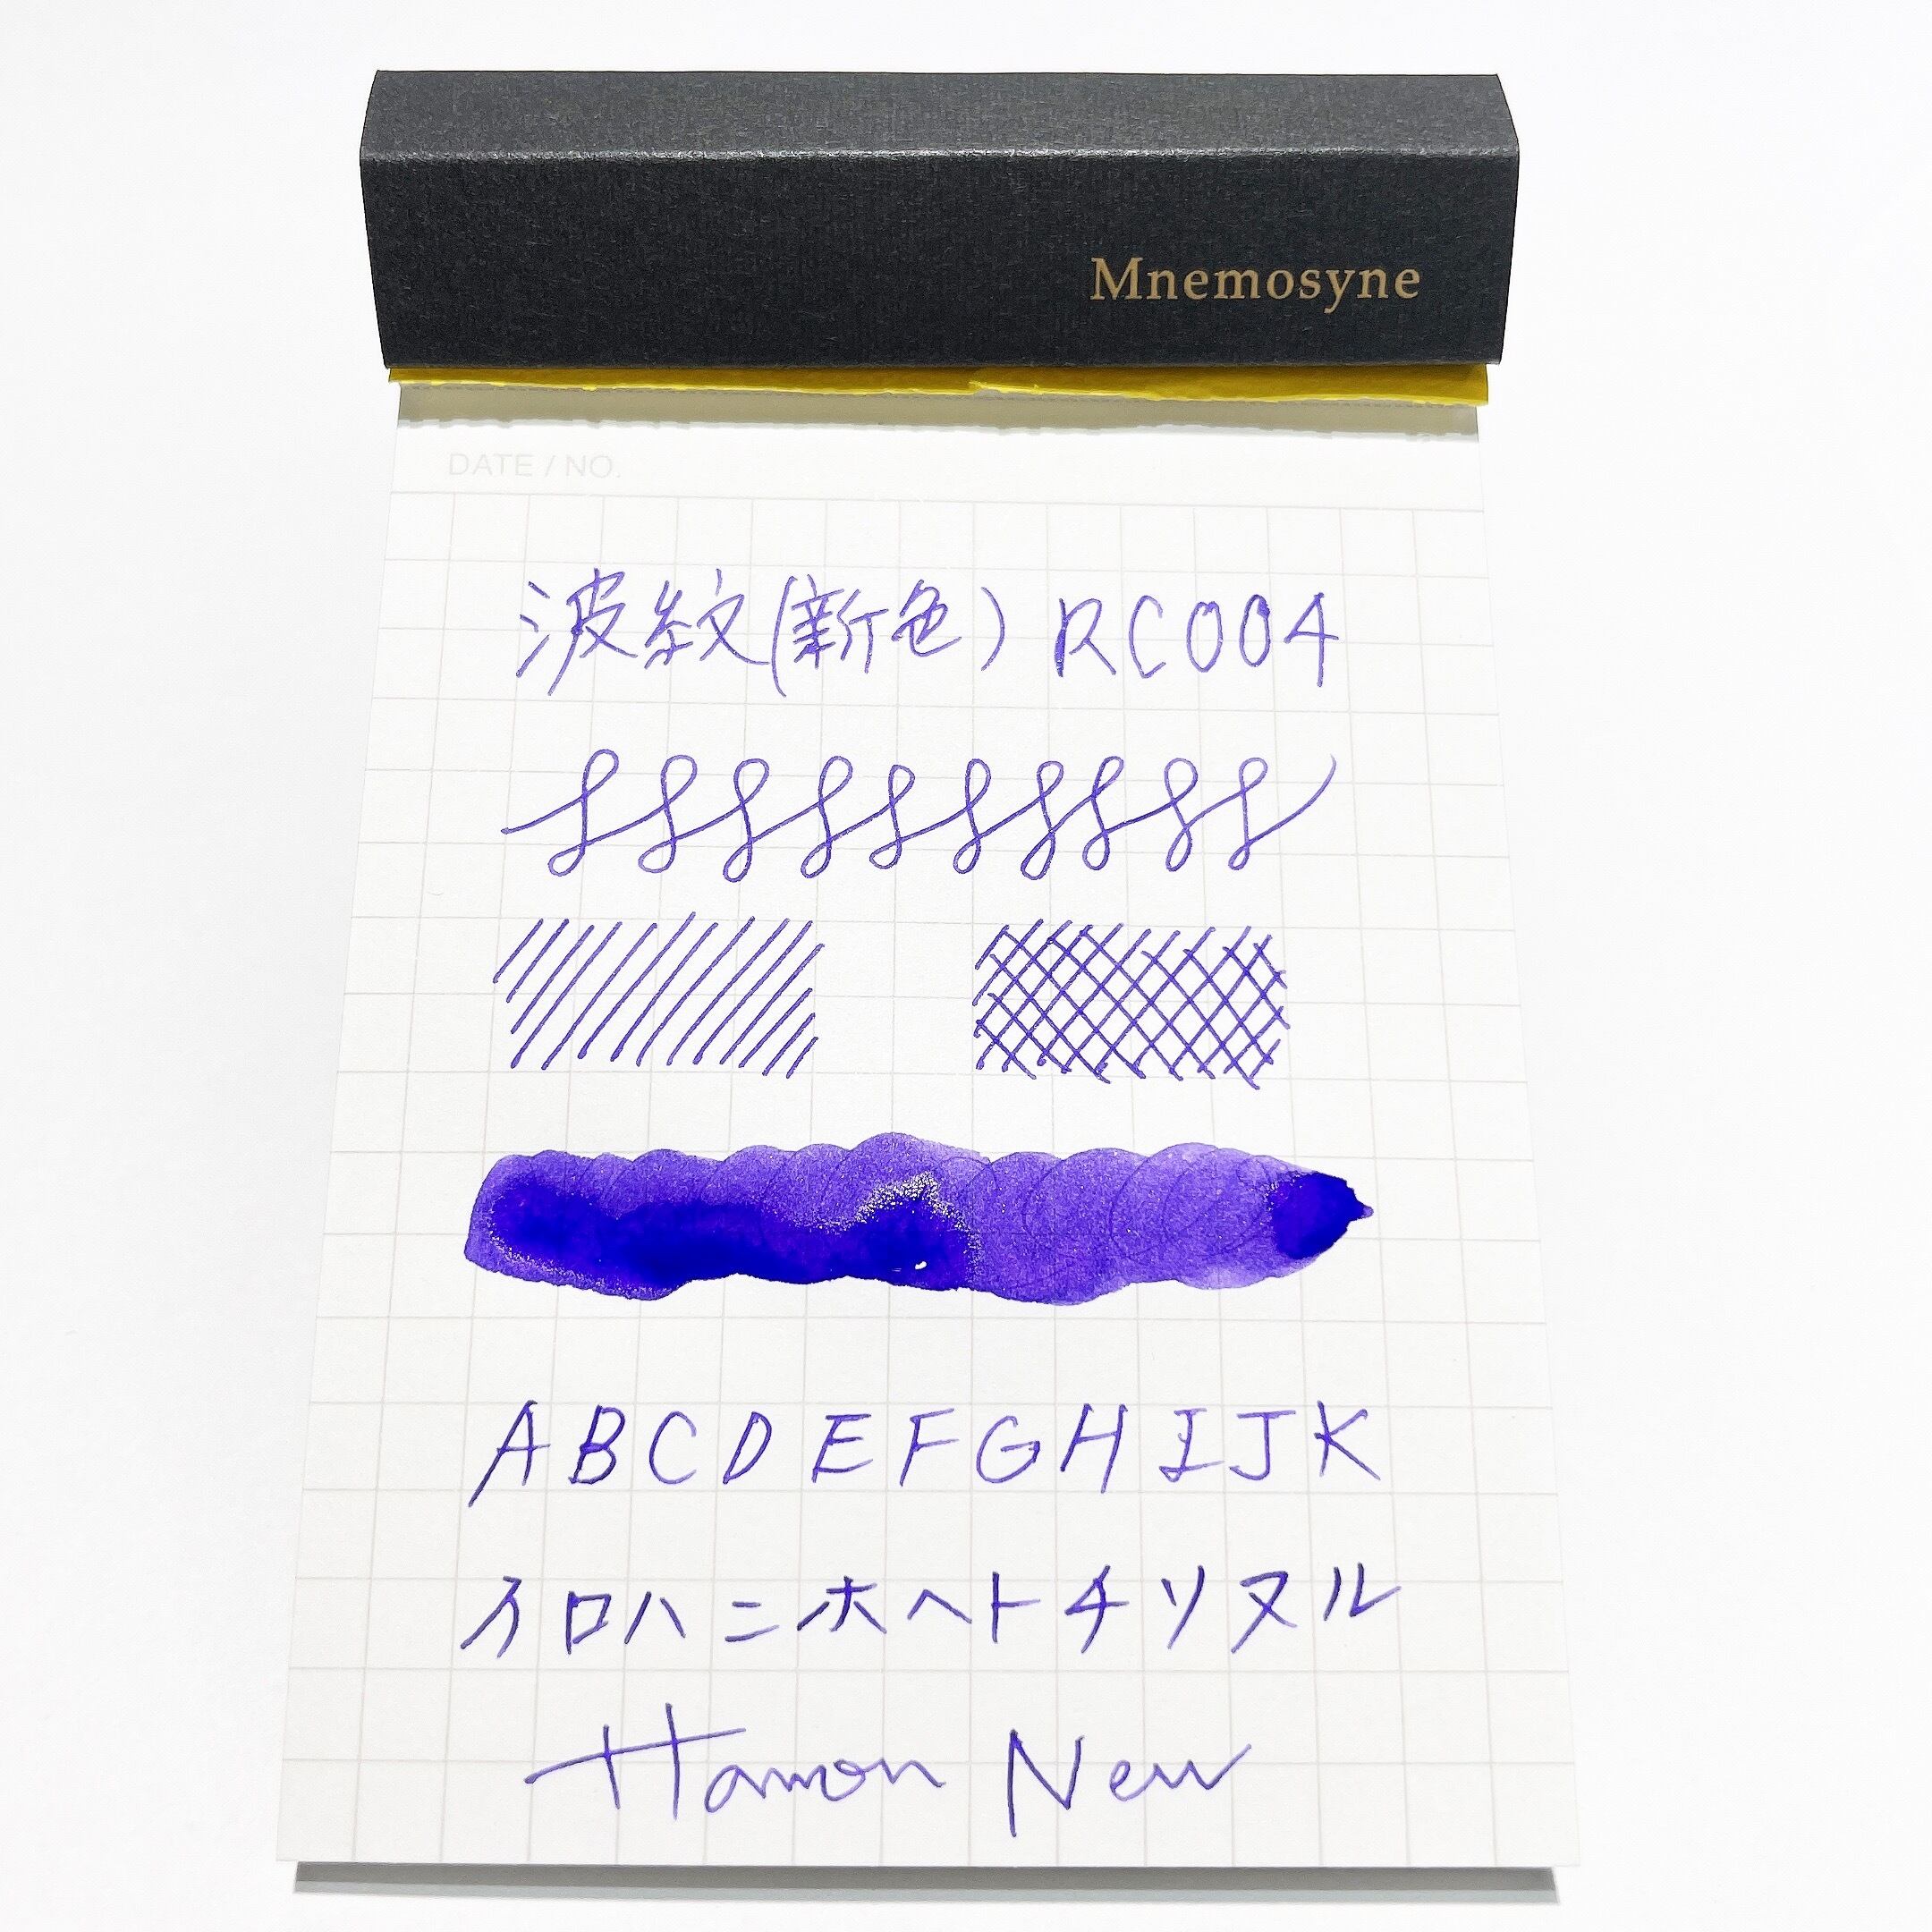 Mnemosyne
DATE / NO.
波紋(新色) RC004
A B C D E F G H I J K
イロハニホヘトチリヌル
Hamon New